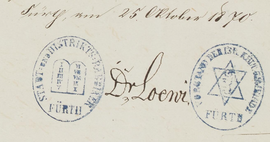 Fürth, am 25. Oktober 1870.
STADT- UND DISTRIKTS-RABBINER
FÜRTH
Dr Loewi
VORSTAND DER ISR. KULTUSGEMEINDE
FÜRTH